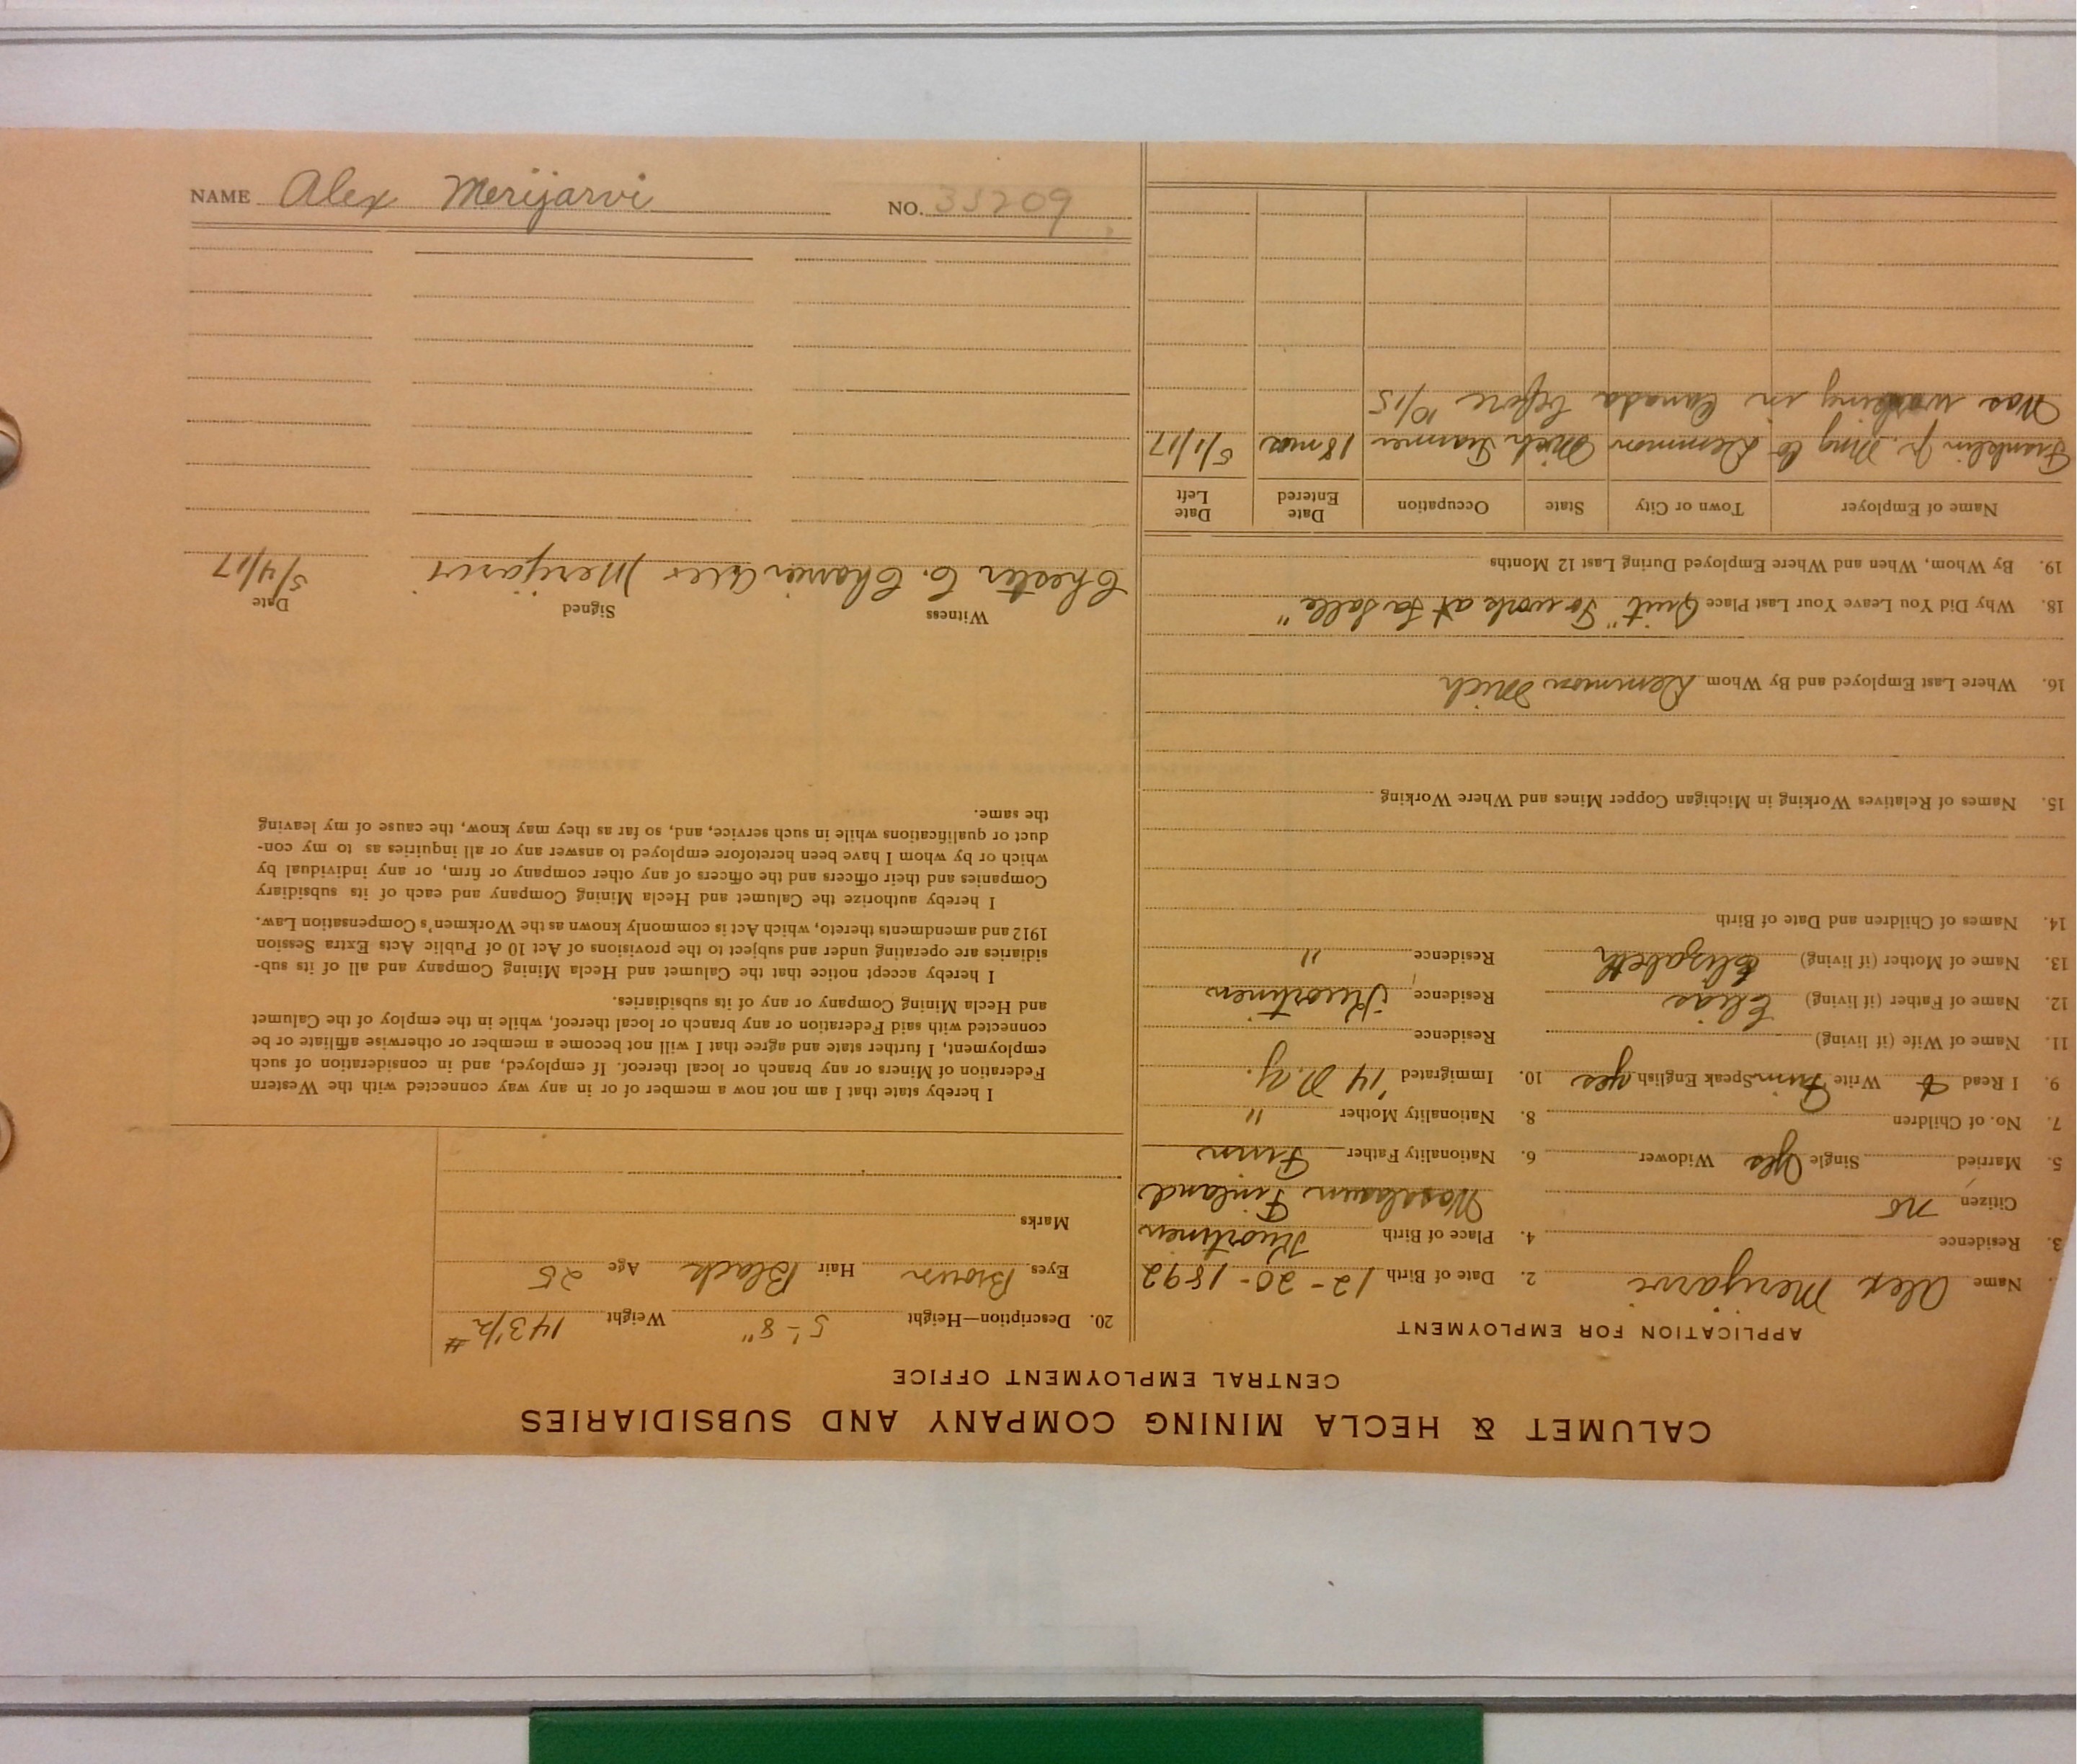 NAME Alex Merijarvi NO. 33209
CALUMET & HECLA MINING COMPANY AND SUBSIDIARIES
CENTRAL EMPLOYMENT OFFICE
APPLICATION FOR EMPLOYMENT
Name Alex Merijarvi 2. Date of Birth 12-20-1892
3. Residence 4. Place of Birth Kuortinen
Citizen no Finland
5. Married Single Yes Widower 6. Nationality Father Finn
7. No. of Children 8. Nationality Mother "
9. I Read & Write Finn Speak English yes 10. Immigrated '14 N.Y.
11. Name of Wife (if living) Residence
12. Name of Father (if living) Elias Residence Kuortinen
13. Name of Mother (if living) Elizabeth Residence "
14. Names of Children and Date of Birth
15. Names of Relatives Working in Michigan Copper Mines and Where Working
16. Where Last Employed and By Whom Demmon Mich
18. Why Did You Leave Your Last Place Quit "To work at La Salle"
19. By Whom, When and Where Employed During Last 12 Months
Name of Employer Town or City State Occupation Date Entered Date Left
Franklin Jr. Mng Co Demmon Mich Trammer 18 mos 5/1/17
Was working in Canada before 10/15
20. Description—Height 5'-8" Weight 143 1/2 #
Eyes Brown Hair Black Age 25
Marks
I hereby state that I am not now a member of or in any way connected with the Western
Federation of Miners or any branch or local thereof. If employed, and in consideration of such
employment, I further state and agree that I will not become a member or otherwise affiliate or be
connected with said Federation or any branch or local thereof, while in the employ of the Calumet
and Hecla Mining Company or any of its subsidiaries.
I hereby accept notice that the Calumet and Hecla Mining Company and all of its sub-
sidiaries are operating under and subject to the provisions of Act 10 of Public Acts Extra Session
1912 and amendments thereto, which Act is commonly known as the Workmen's Compensation Law.
I hereby authorize the Calumet and Hecla Mining Company and each of its subsidiary
Companies and their officers and the officers of any other company or firm, or any individual by
which or by whom I have been heretofore employed to answer any or all inquiries as to my con-
duct or qualifications while in such service, and, so far as they may know, the cause of my leaving
the same.
Witness Signed Date
Chester C. Alex Merijarvi 5/4/17